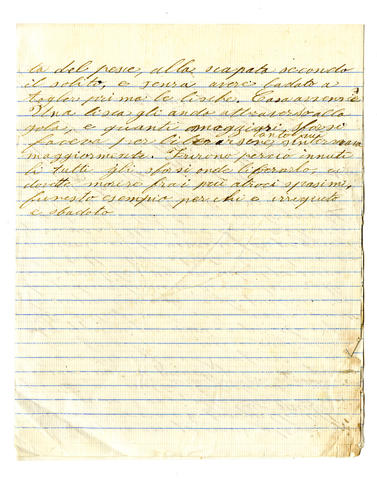 ta del pesce, alla scapata secondo
il solito, e senza avere badato a
toglier prima le lische. Cosa avenne?
Una lisca gli andò attraverso alla
gola, e quanti maggiori sforzi
faceva per liberarsene, tanto più s'internava
maggiormente. Furono perciò innuti
li tutti gli sforzi onde liberarlo, e
dovette morire fra i più atroci spasimi,
funesto esempio per chi è irrequeto
e sbadato